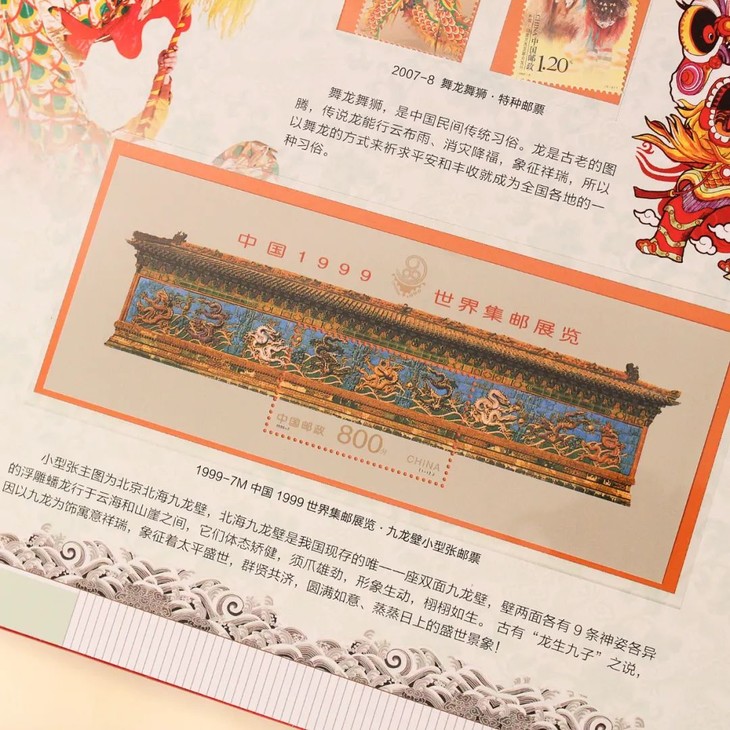 中国邮政
1.20元
2007-8 舞龙舞狮·特种邮票
舞龙舞狮，是中国民间传统习俗。龙是古老的图
腾，传说龙能行云布雨、消灾降福，象征祥瑞，所以
以舞龙的方式来祈求平安和丰收就成为全国各地的一
种习俗。
中国1999
世界集邮展览
中国邮政
800分
CHINA
1999-7M 中国 1999 世界集邮展览·九龙壁小型张邮票
小型张主图为北京北海九龙壁，北海九龙壁是我国现存的唯一一座双面九龙壁，壁两面各有 9 条神姿各异
的浮雕蟠龙行于云海和山崖之间，它们体态矫健，须爪雄劲，形象生动，栩栩如生。古有“龙生九子”之说，
因以九龙为饰寓意祥瑞，象征着太平盛世，群贤共济，圆满如意、蒸蒸日上的盛世景象！